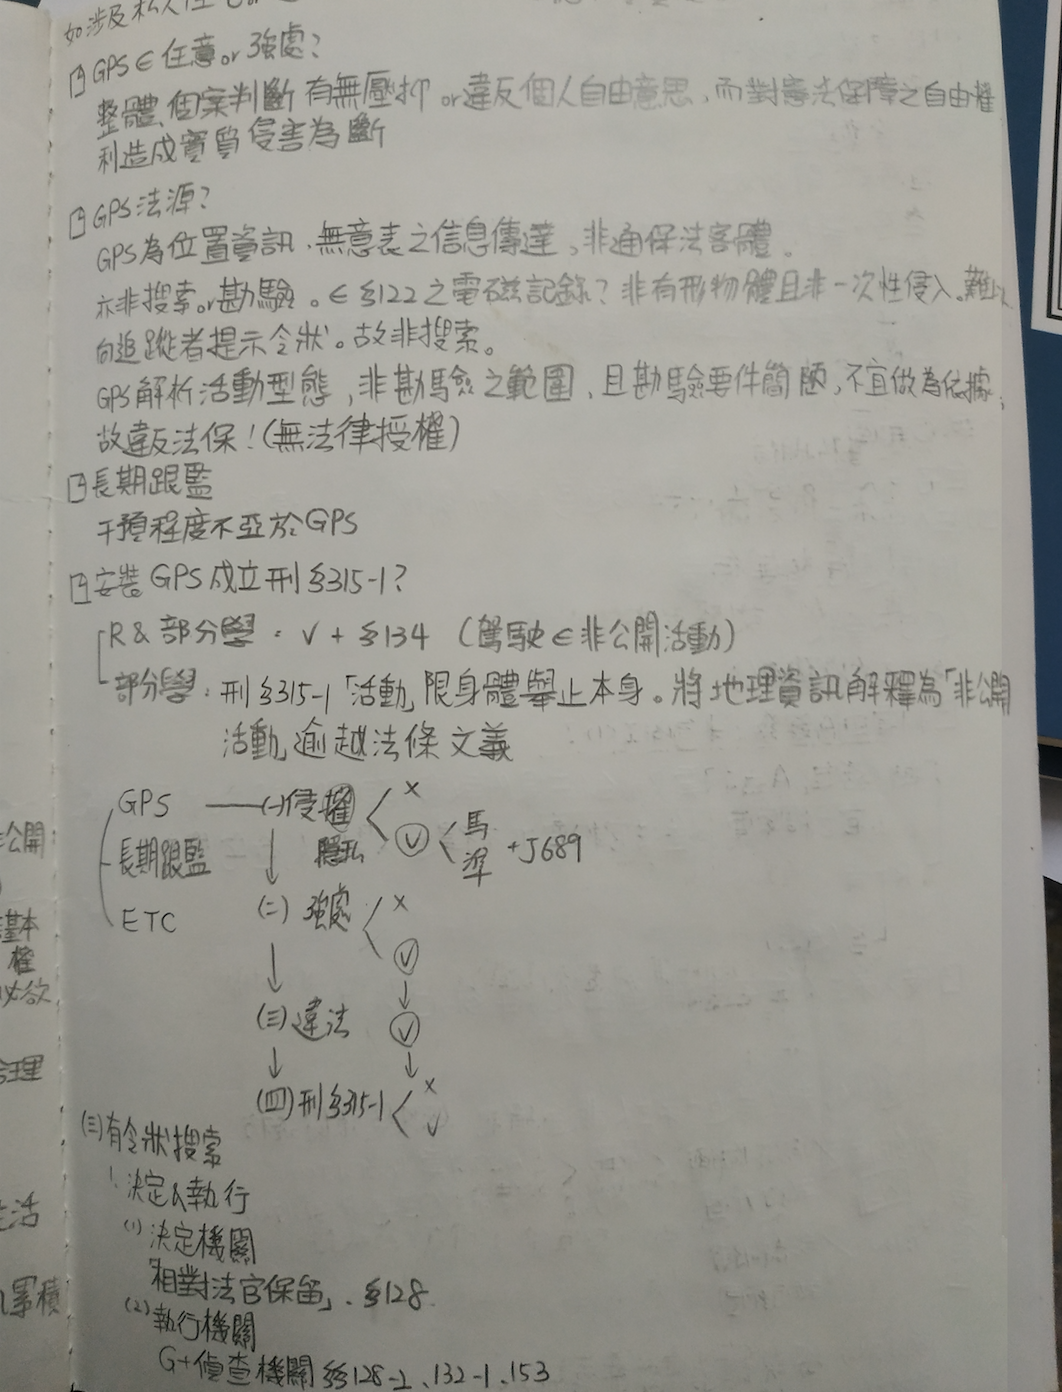 如涉及私人性
GPS∈任意or強處?
整體、個案判斷有無壓抑or違反個人自由意思,而對憲法保障之自由權
利造成實質侵害為斷
GPS法源?
GPS為位置資訊、無意表之信息傳達,非通保法客體。
亦非搜索or勘驗。∈§122之電磁記錄?非有形物體且非一次性侵入。難以
向追蹤者提示令狀。故非搜索。
GPS解析活動型態,非勘驗之範圍、且勘驗要件簡陋,不宜做為依據,
故違反法保!(無法律授權)
長期跟監
干預程度不亞於GPS
安裝GPS成立刑§315-1?
R&部分學:V+§134(駕駛∈非公開活動)
部分學:刑§315-1「活動」限身體舉止本身。將地理資訊解釋為「非公開
活動」逾越法條文義
GPS —(一)侵權 < x
長期跟監 隱私 V < 馬 準 +J689
ETC (二)強處 < x
V
(三)違法 V
(四)刑§315-1 < x
V
(三)有令狀搜索
1.決定&執行
(1)決定機關
「相對法官保留」、§128.
(2)執行機關
G+偵查機關§§128-2、132-1、153
公開
基本
權
必欲
合理
生活
累積